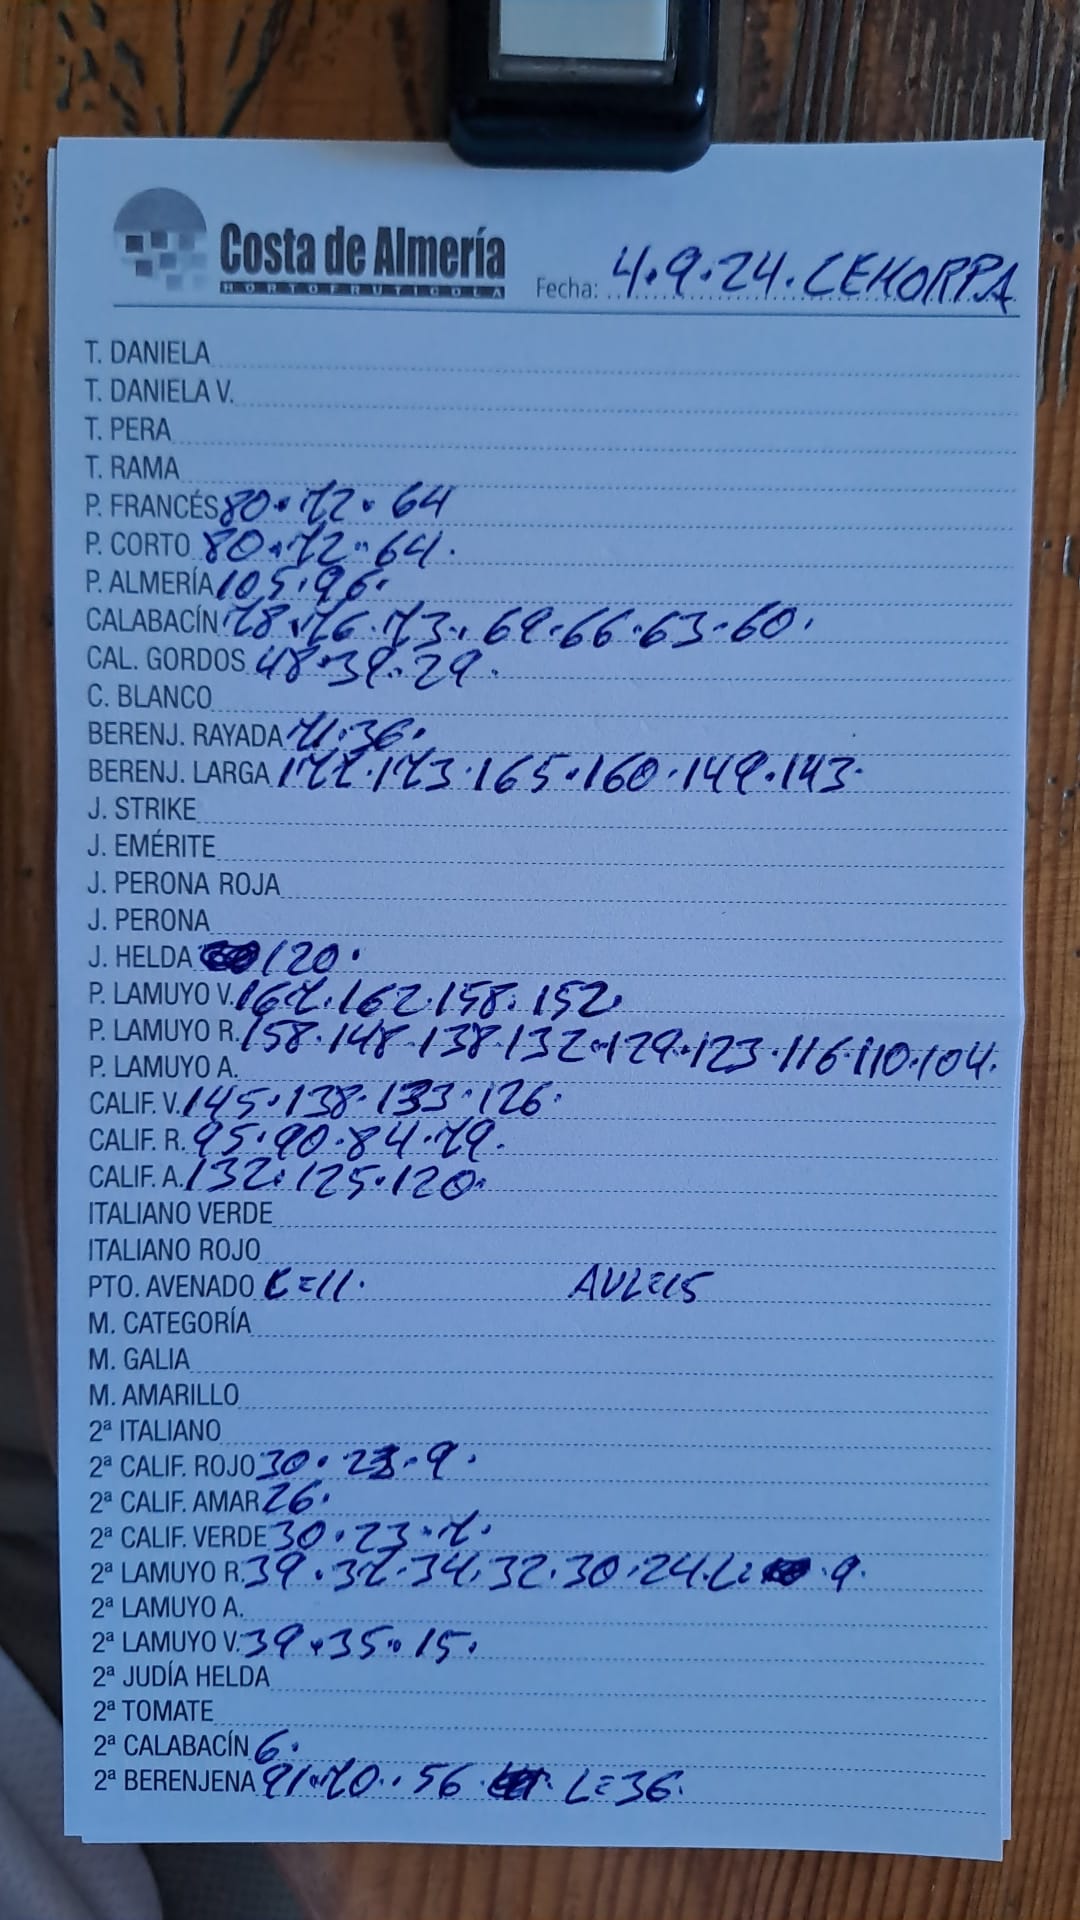 Costa de Almería
HORTOFRUTICOLA
Fecha: 4.9.24. CEHORPA
T. DANIELA
T. DANIELA V.
T. PERA
T. RAMA
P. FRANCÉS 80.72.64
P. CORTO 80.72.64.
P. ALMERÍA 105.96.
CALABACÍN 78.76.73.69.66.63.60.
CAL. GORDOS 48.39.29.
C. BLANCO
BERENJ. RAYADA 71.36.
BERENJ. LARGA 177.173.165.160.149.143.
J. STRIKE
J. EMÉRITE
J. PERONA ROJA
J. PERONA
J. HELDA 120.
P. LAMUYO V. 167.162.158.152.
P. LAMUYO R. 158.148.138.132.129.123.116.110.104.
P. LAMUYO A.
CALIF. V. 145.138.133.126.
CALIF. R. 95.90.84.79.
CALIF. A. 132.125.120.
ITALIANO VERDE
ITALIANO ROJO
PTO. AVENADO C=11. AVL=15
M. CATEGORÍA
M. GALIA
M. AMARILLO
2ª ITALIANO
2ª CALIF. ROJO 30.23.9.
2ª CALIF. AMAR 26.
2ª CALIF. VERDE 30.23.7.
2ª LAMUYO R. 39.37.34.32.30.24.L: 9.
2ª LAMUYO A.
2ª LAMUYO V. 39.35.15.
2ª JUDÍA HELDA
2ª TOMATE
2ª CALABACÍN 6.
2ª BERENJENA 91.70..56. L=36.